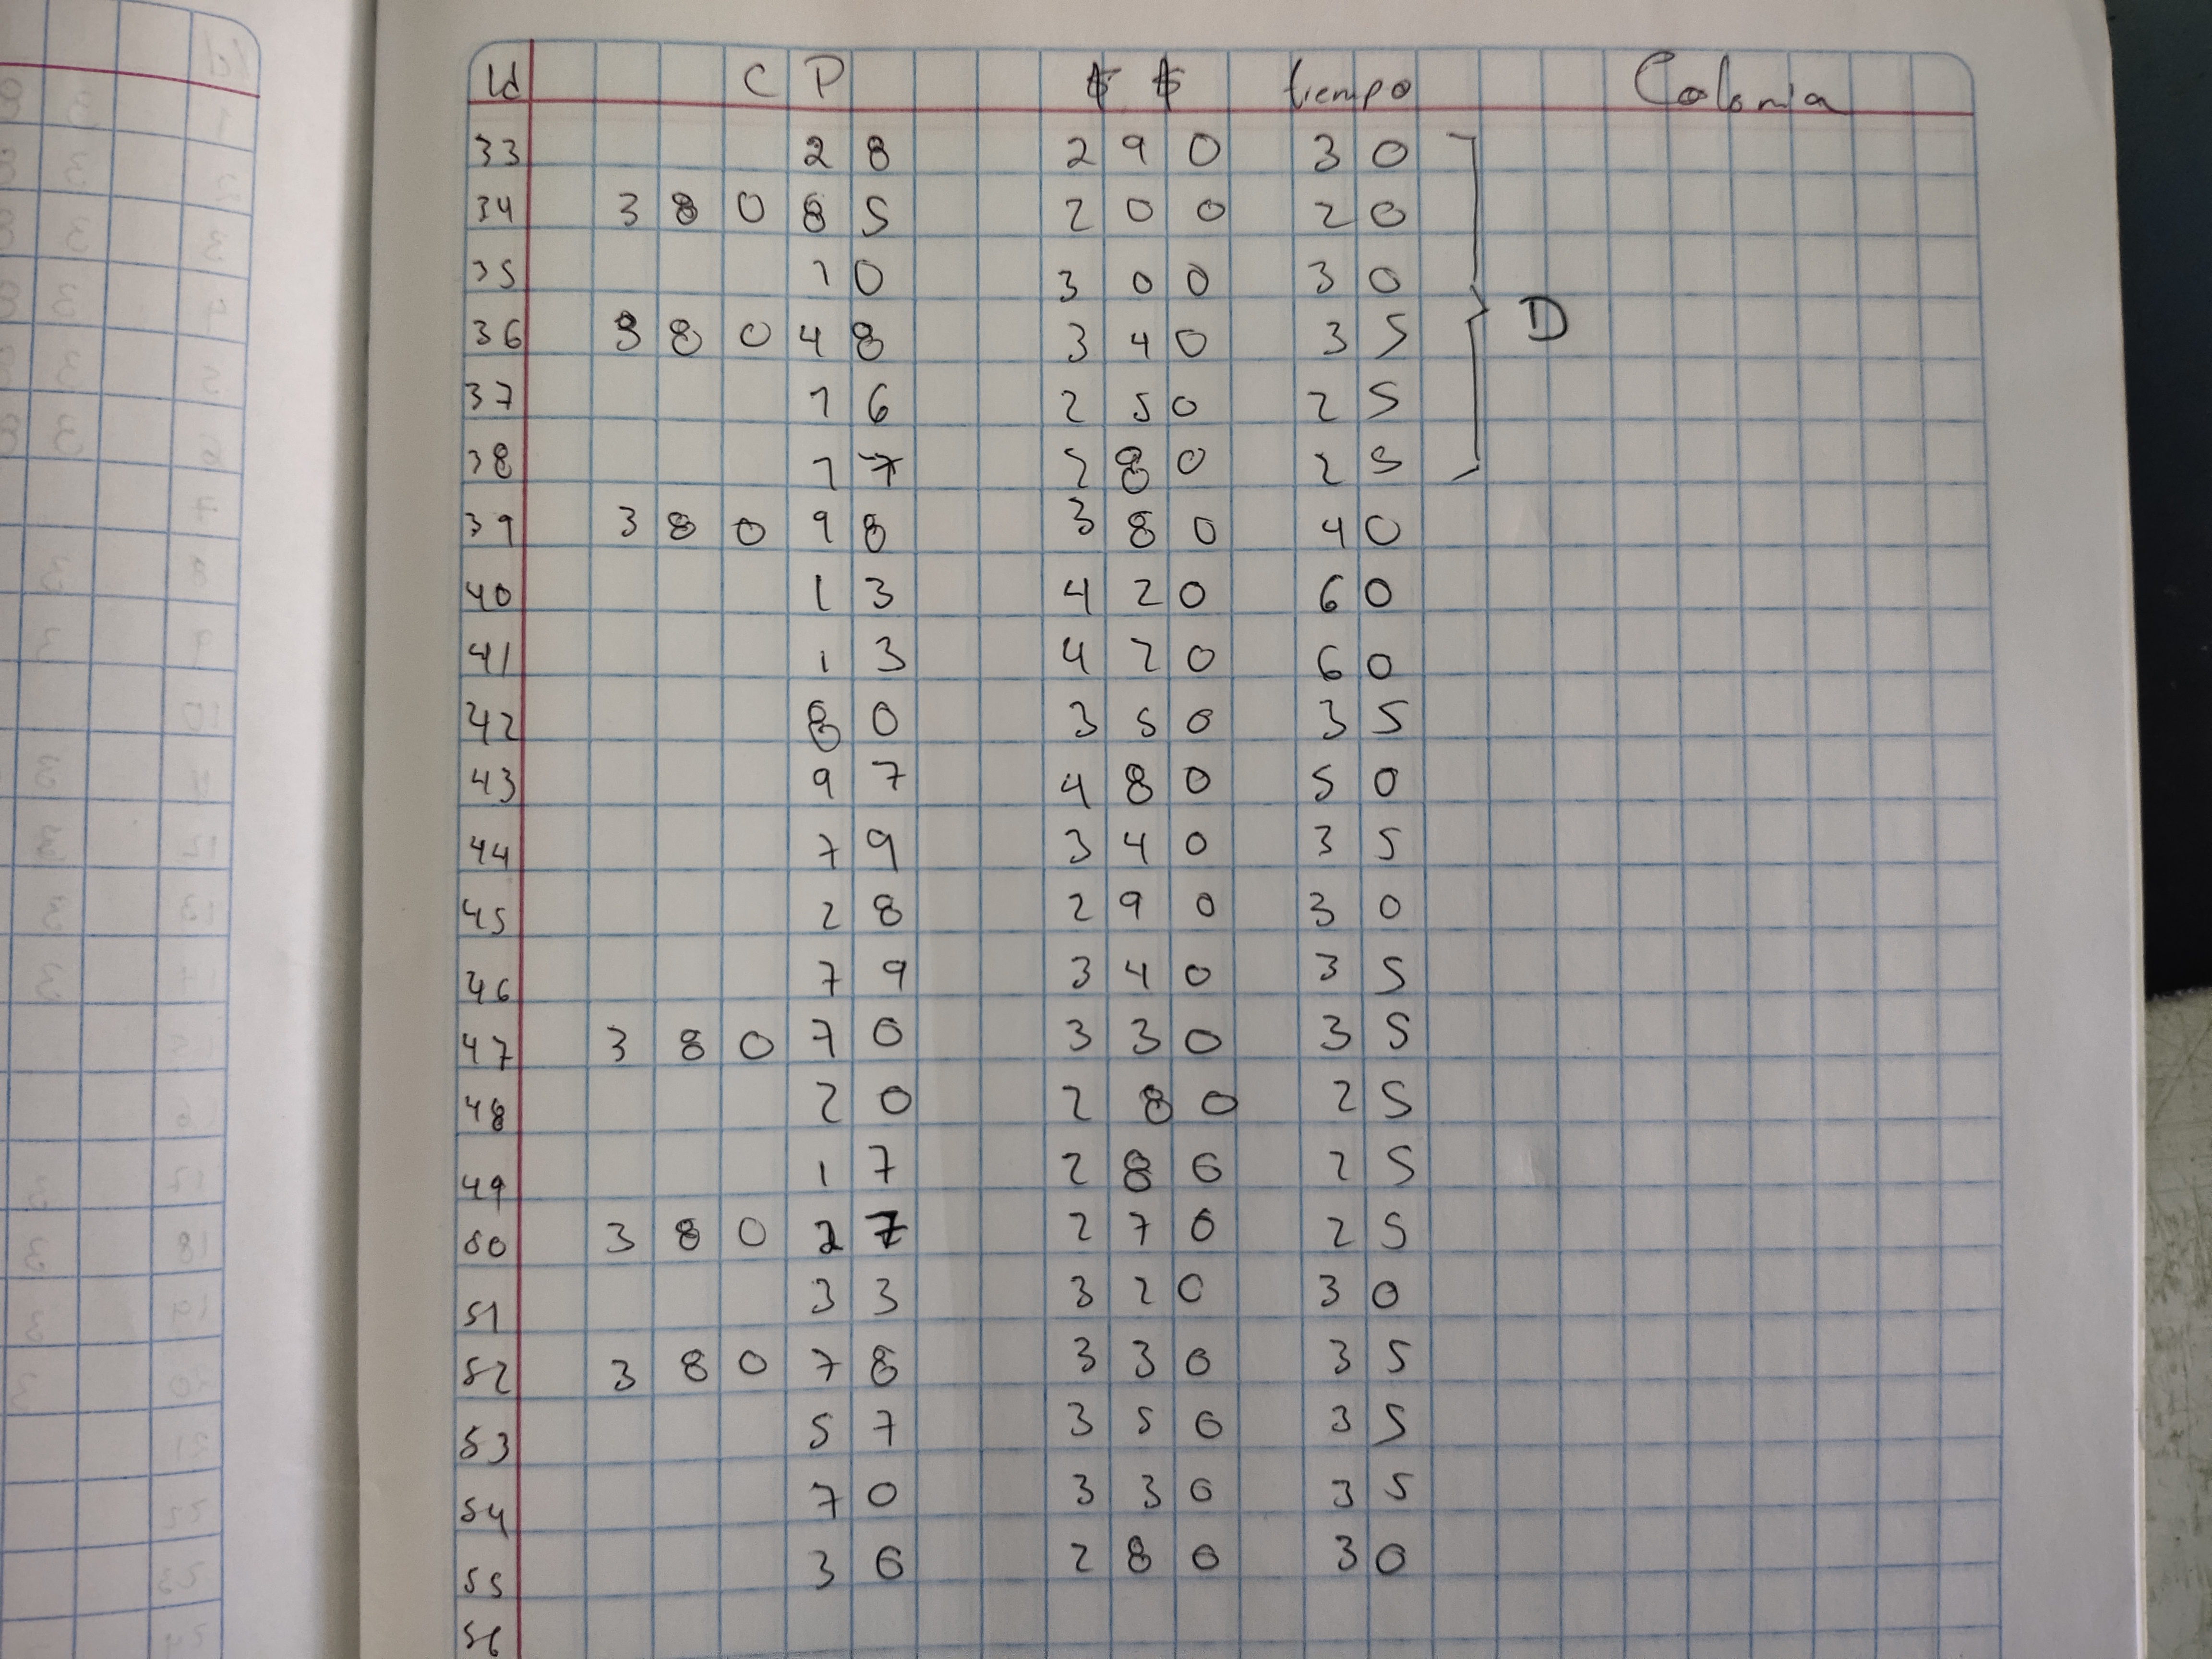 Id CP $$ tiempo Colonia
33 28 290 30
34 38085 200 20
35 10 300 30
36 38048 340 35
37 76 250 25 D
38 77 280 25
39 38098 380 40
40 13 420 60
41 13 420 60
42 80 350 35
43 97 480 50
44 79 340 35
45 28 290 30
46 79 340 35
47 38070 330 35
48 20 280 25
49 17 280 25
50 38027 270 25
51 33 320 30
52 38078 330 35
53 57 350 35
54 70 330 35
55 36 280 30
56